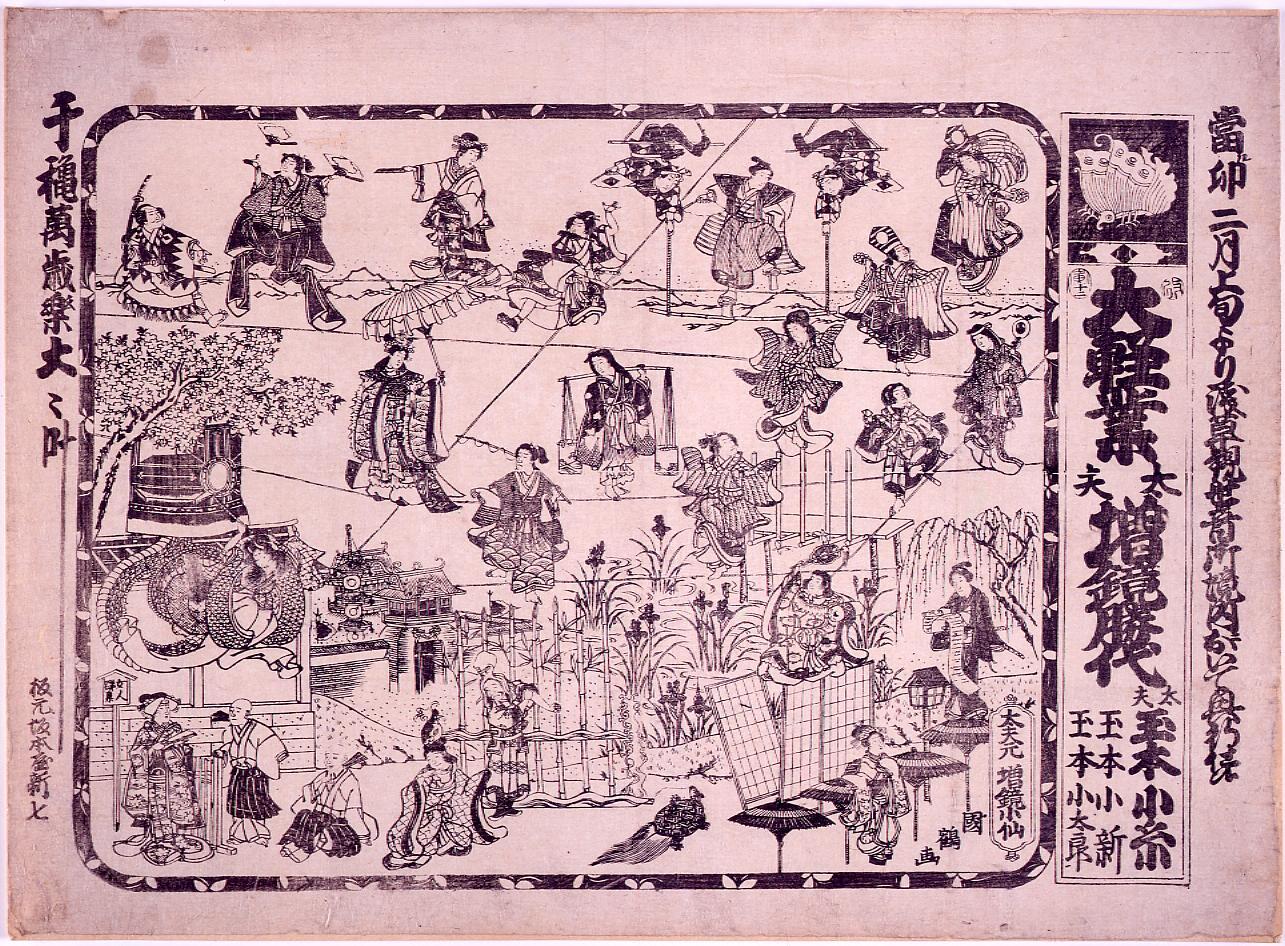 當卯二月上旬より淺草觀世音御境内おゐて興行仕候
大輕業
太夫 増鏡勝代
太夫 玉本小糸
玉本小新
玉本小太郎
太夫元 増鏡小仙
國鶴画
千穐萬歳樂大々叶
板元 坂本屋新七